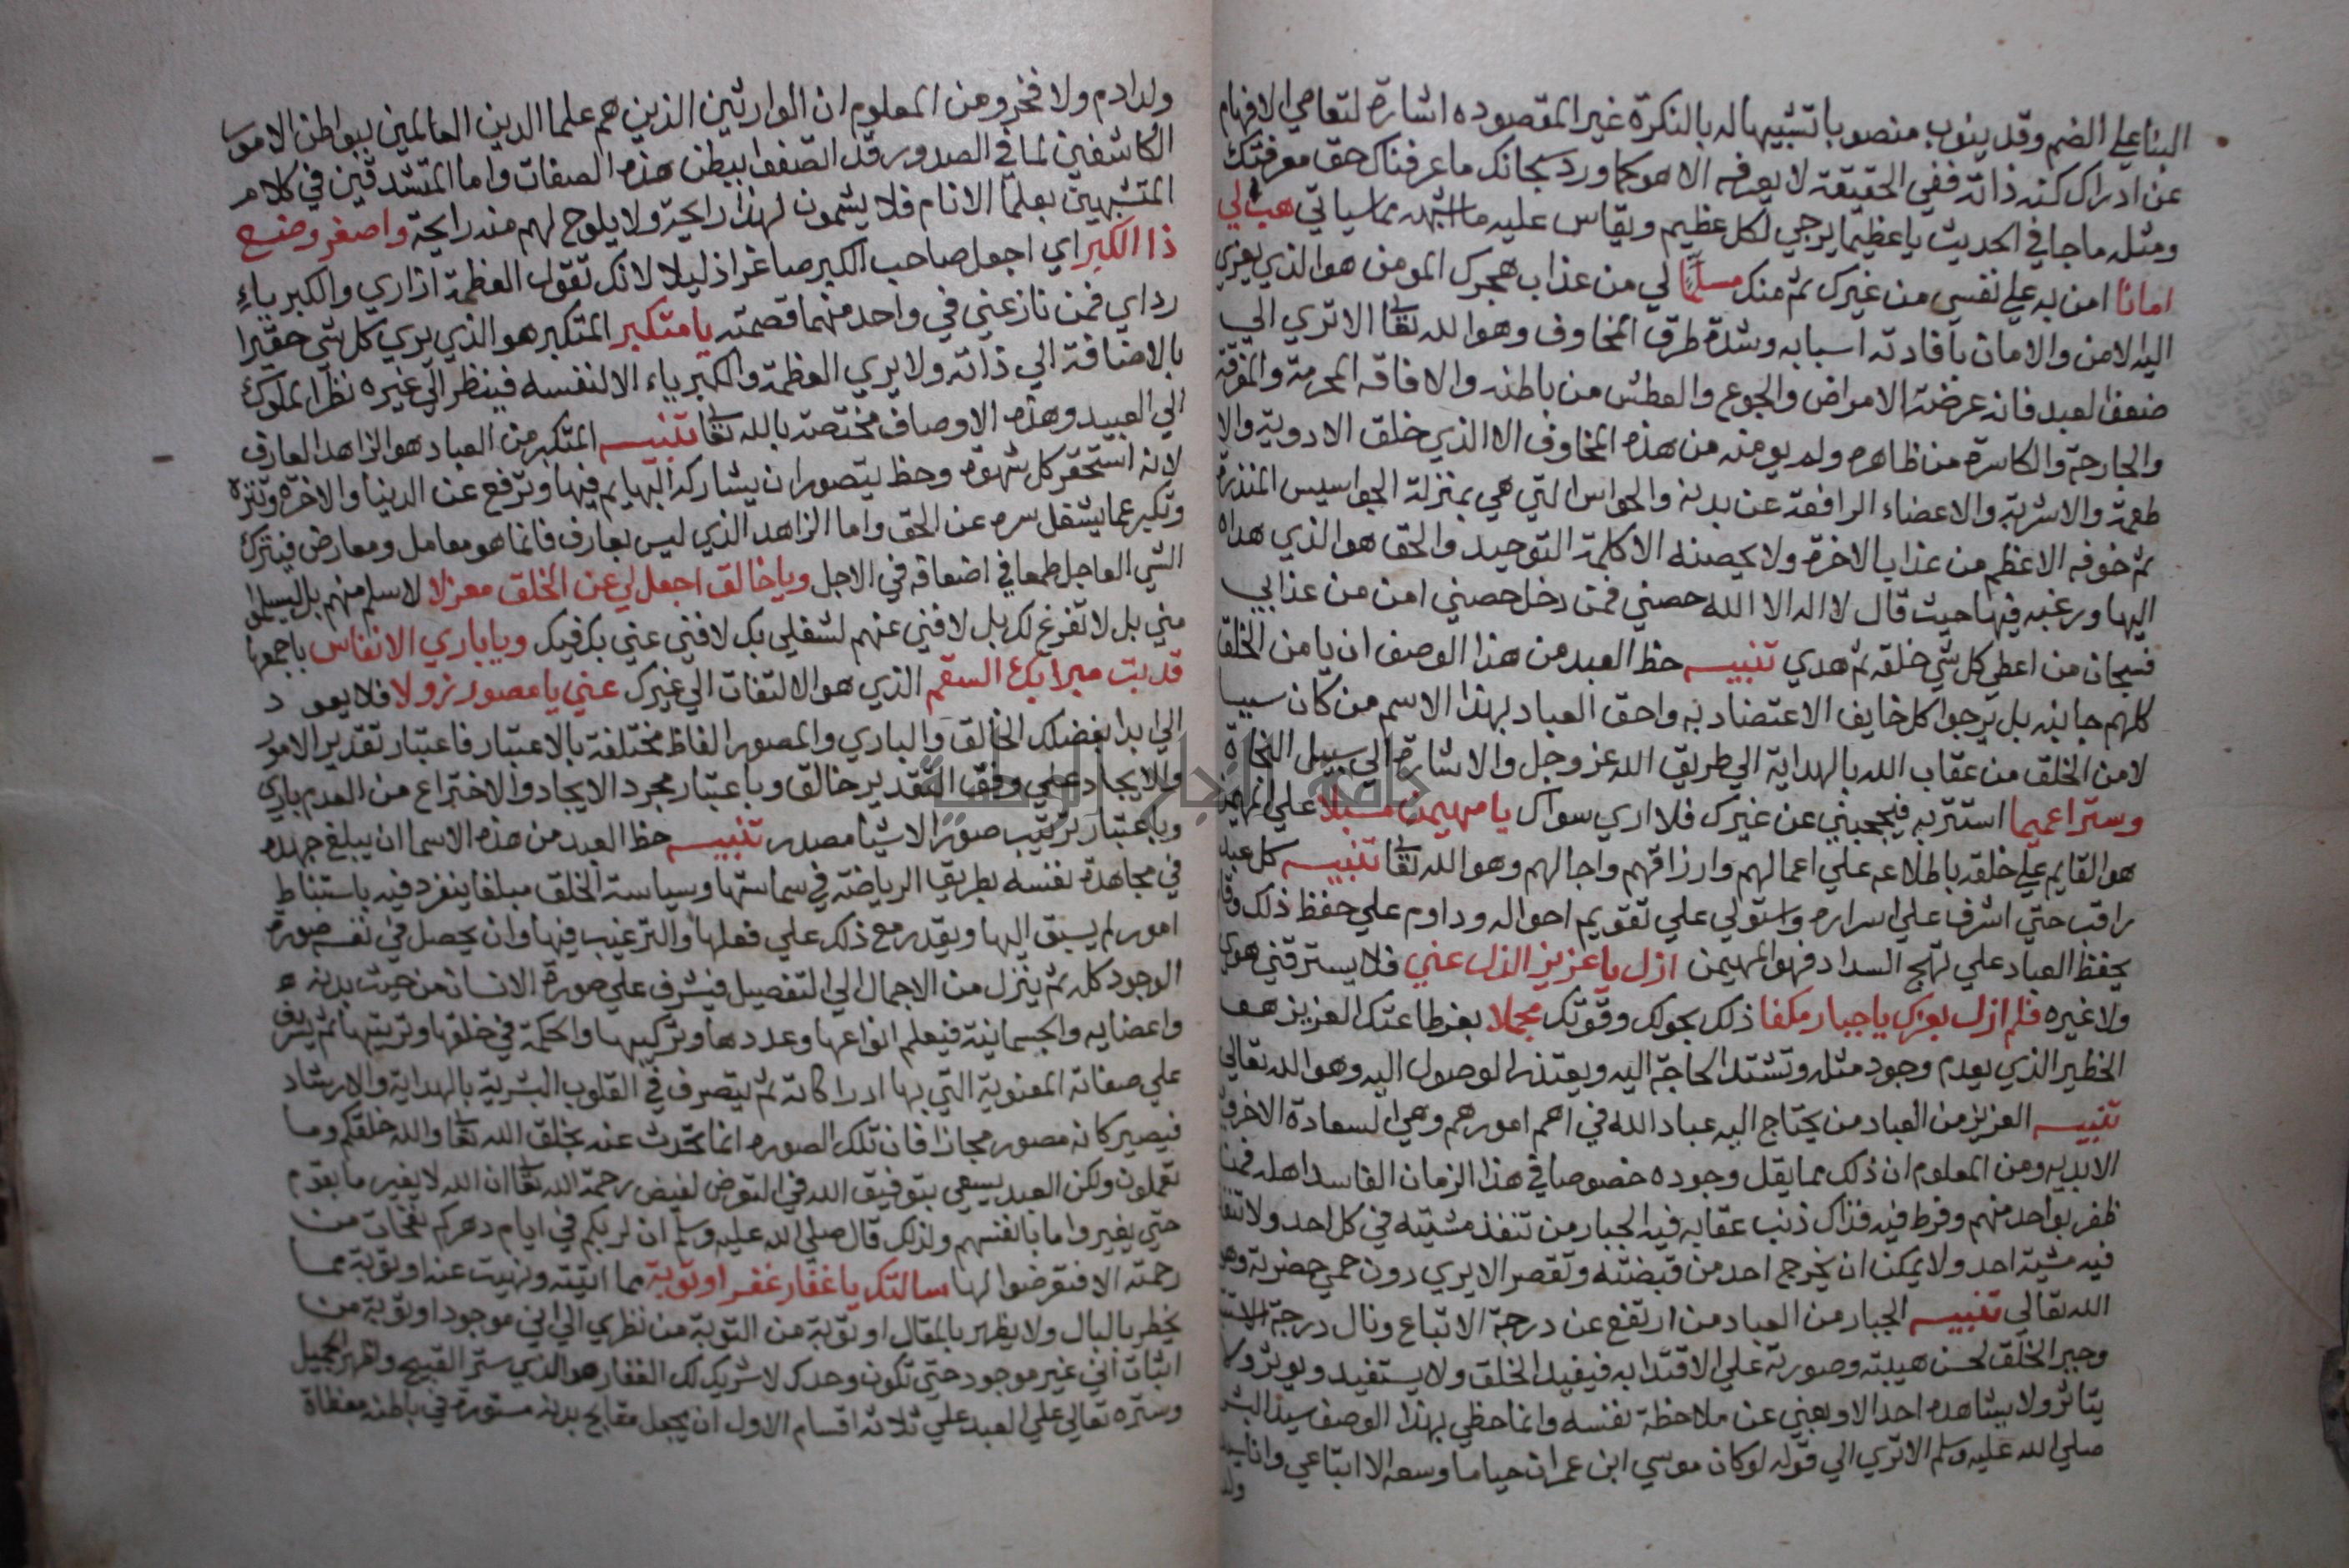 البنا علي الضم وقد ينوب منصوبا تشبيها له بالنكرة غير المقصوده اشارة لتعاصي الافهام
عن ادراك كنه ذاته ففي الحقيقة لا يعرفه الا هو كما ورد سبحانك ما عرفناك حق معرفتك
ومثله ما جا في الحديث يا عظيما يرجي لكل عظيم ويقاس عليه ما اشبهه مما سياتي هب لي
امانا امن به علي نفسي من غيرك ثم منك مسلما لي من عذاب هجرك المومن هو الذي يعزي
اليه الامن والامان بافادته اسبابه وسده طرق المخاوف وهو الله تعا الا تري الي
ضعف العبد فانه عرضة الامراض والجوع والعطش من باطنه والافاقه المحرمة والمغرقة
والجارحة والكاسرة من ظاهره ولم يومنه من هذه المخاوف الا الذي خلق الادوية والا
طعمة والاشربة والاعضاء الرافعة عن بدنه والحواس التي هي بمنزلة الجواسيس المنذرة
ثم خوفه الاعظم من عذاب الاخرة ولا يحصنه الا كلمة التوحيد والحق هو الذي هداه
اليها ورغبه فيها حيث قال لا اله الا الله حصني فمن دخل حصني امن من عذابي
فسبحان من اعطي كل شي خلقه ثم هدي تنبيه حظ العبد من هذا الوصف ان يامن الخلق
كلهم جانبه بل يرجوا كل خايف الاعتضاد به واحق العباد بهذا الاسم من كان سببا
لامن الخلق من عقاب الله بالهداية الي طريق الله عز وجل والاشارة الي سبيل النجاة
وسترا عميما استتر به فيحجبني عن غيرك فلا اري سواك يا مهيمن مسبلا علي المهيمن
هو القايم علي خلقه باطلاعه علي اعمالهم وارزاقهم واجالهم وهو الله تعا تنبيه كل عبد
راقب حتي اشرف علي اسراره واستولي علي تقويم احواله وداوم علي حفظ ذلك وقام
بحفظ العباد علي نهج السداد فهو المهيمن ازل يا عزيز الذل عني فلا يسترقني هوي
ولا غيره فلم ازل بعزك يا جبار مكفا ذلك بحولك وقوتك مجملا بعز طاعتك العزيز هو
الخطير الذي يعدم وجود مثله وتشتد الحاجة اليه ويعتذر الوصول اليه وهو الله تعالي
تنبيه العزيز من العباد من يحتاج اليه عباد الله في اهم امورهم وهي السعادة الاخروية
الابديه ومن المعلوم ان ذلك مما يقل وجوده خصوصا في هذا الزمان الفاسد اهله فمن
ظفر بواحد منهم وفرط فيه فذاك ذنب عقابه فيه الجبار من تنفذ مشيته في كل احد ولا تنفذ
فيه مشية احد ولا يمكن ان يخرج احد من قبضته وتقصر الايري دون حمي حضرته وهو
الله تعالي تنبيه الجبار من العباد من ارتفع عن درجة الاتباع ونال درجة
وجبر الخلق لحسن هيبته وصورته علي الاقتدا به فيفيد الخلق ولا يستفيد ويوثر ولا
يتاثر ولا يشاهده احد الا ويفني عن ملاحظة نفسه وانما حظي بهذا الوصف سيد البشر
صلي الله عليه وسلم الا تري الي قوله لو كان موسي ابن عمران حيا ما وسعه الا اتباعي وانا سيد
ولد
ولد ادم ولا فخر ومن المعلوم ان الوارثين الذين هم علما الدين العالمين ببواطن الامور
الكاشفين لما في الصدور قد اتصفوا ببطن هذه الصفات واما المتشدقين في كلام
المتشبهين بعلما الانام فلا يشمون لهذا رايحة ولا يلوح لهم منه رايحة واصغر وضع
ذا الكبر اي اجعل صاحب الكبر صاغرا ذليلا لانك تقول العظمة ازاري والكبرياء
رداي فمن نازعني في واحد منهما قصمته يا متكبر المتكبر هو الذي يري كل شي حقيرا
بالاضافة الي ذاته ولا يري العظمة والكبرياء الا لنفسه فينظر الي غيره نظر الملوك
الي العبيد وهذه الاوصاف مختصة بالله تعا تنبيه المتكبر من العباد هو الزاهد العارف
لانه استحقر كل شهوة وحظ يتصور ان يشاركه البهايم فيها وترفع عن الدنيا والاخرة وتنزه
وتكبر عما يشغل سره عن الحق واما الزاهد الذي ليس بعارف فانما هو معامل ومعارض فيترك
الشي العاجل طمعا في اضعافه في الاجل ويا خالق اجعل لي عن الخلق معزلا لاسلم منهم بل ليسلموا
مني بل لا تفرغ لك بل لافني عنهم لشغلي بك لافني عني بك فيك ويا باري الانفاس باجمعها
قد بت مبرا بك السقم الذي هو الالتفات الي غيرك عني يا مصور نزولا فلا يعود
الي ابدا بفضلك الخالق والباري والمصور الفاظ مختلفة بالاعتبار فاعتبار تقدير الامور
والايجاد علي وفق التقدير خالق وباعتبار مجرد الايجاد والاختراع من العدم باري
وباعتبار ترتيب صور الاشيا مصدر تنبيه حظ العبد من هذه الاسما ان يبلغ جهده
في مجاهدة نفسه بطريق الرياضة في سماستها وسياسة الخلق مبلغا ينفرد فيه باستنباط
امور لم يسبق اليها ويقدر مع ذلك علي فعلها والترغيب فيها وان يحصل في نفسه صورة
الوجود كله ثم ينزل من الاجمال الي التفصيل فيشرف علي صورة الانسان من حيث بدنه
واعضايه والجسمانية فيعلم انواعها وعددها وتركيبها والحكمة في خلقها وترتيبها ثم يشرف
علي صفاته المعنوية التي بها ادراكاته ثم يتصرف في القلوب البشرية بالهداية والارشاد
فيصير كانه مصور مجازا فان تلك الصوره انما تحدث عنه بخلق الله تعا والله خلقكم وما
تعملون ولكن العبد يسعي بتوفيق الله في التعرض لفيض رحمة الله تعا ان الله لا يغير ما بقوم
حتي يغيروا ما بانفسهم ولذلك قال صلي الله عليه وسلم ان لربكم في ايام دهركم نفحات من
رحمته الا فتعرضوا لها سالتك يا غفار غفرا وتوبة مما اتيته ونهيت عنه او توبة مما
يخطر بالبال ولا يظهر بالمقال او توبة من التوبة من نظري الي اني موجود او توبة من
اثبات اني غير موجود حتي تكون وحدك لا شريك لك الغفار هو الذي ستر القبيح واظهر الجميل
وستره تعالي علي العبد علي ثلاثة اقسام الاول ان يجعل مقابح بدنه مستورة في باطنه مغطاة